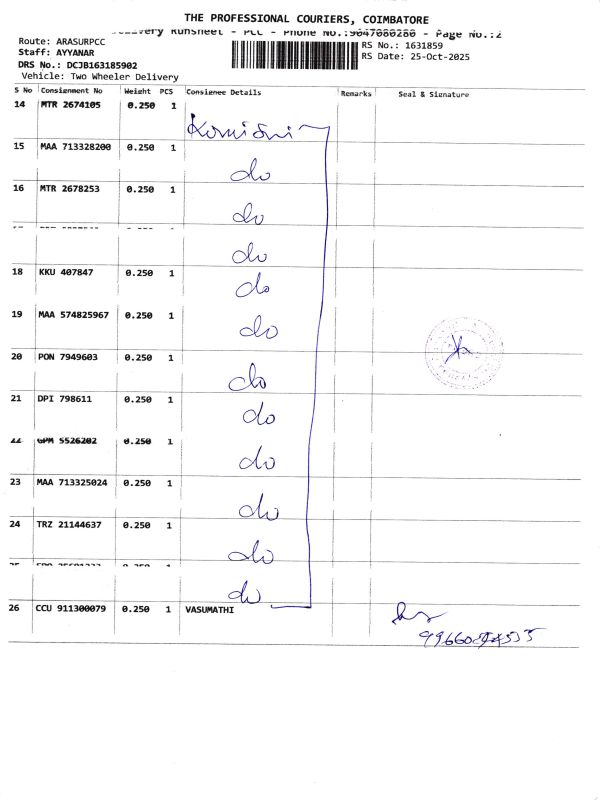 THE PROFESSIONAL COURIERS, COIMBATORE
Delivery Runsheet - PCC - Phone No.:9047080280 - Page No.:2
Route: ARASURPCC
RS No.: 1631859
Staff: AYYANAR
RS Date: 25-Oct-2025
DRS No.: DCJB163185902
Vehicle: Two Wheeler Delivery
S No Consignment No Weight PCS Consignee Details Remarks Seal & Signature
14 MTR 2674105 0.250 1
15 MAA 713328200 0.250 1
do
16 MTR 2678253 0.250 1
do
do
18 KKU 407847 0.250 1
do
19 MAA 574825967 0.250 1
do
20 PON 7949603 0.250 1
do
21 DPI 798611 0.250 1
do
22 GPM 5526202 0.250 1
do
23 MAA 713325024 0.250 1
do
24 TRZ 21144637 0.250 1
do
do
26 CCU 911300079 0.250 1 VASUMATHI